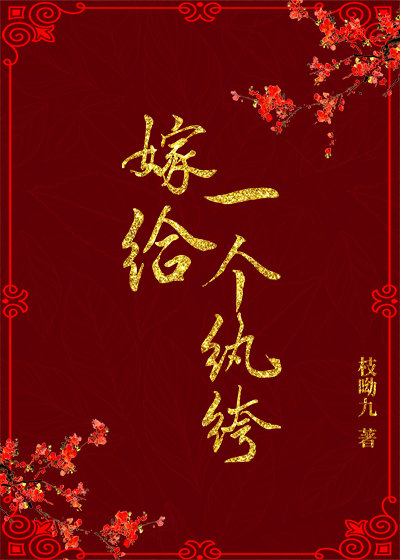 嫁给
一个纨绔
枝呦九 著